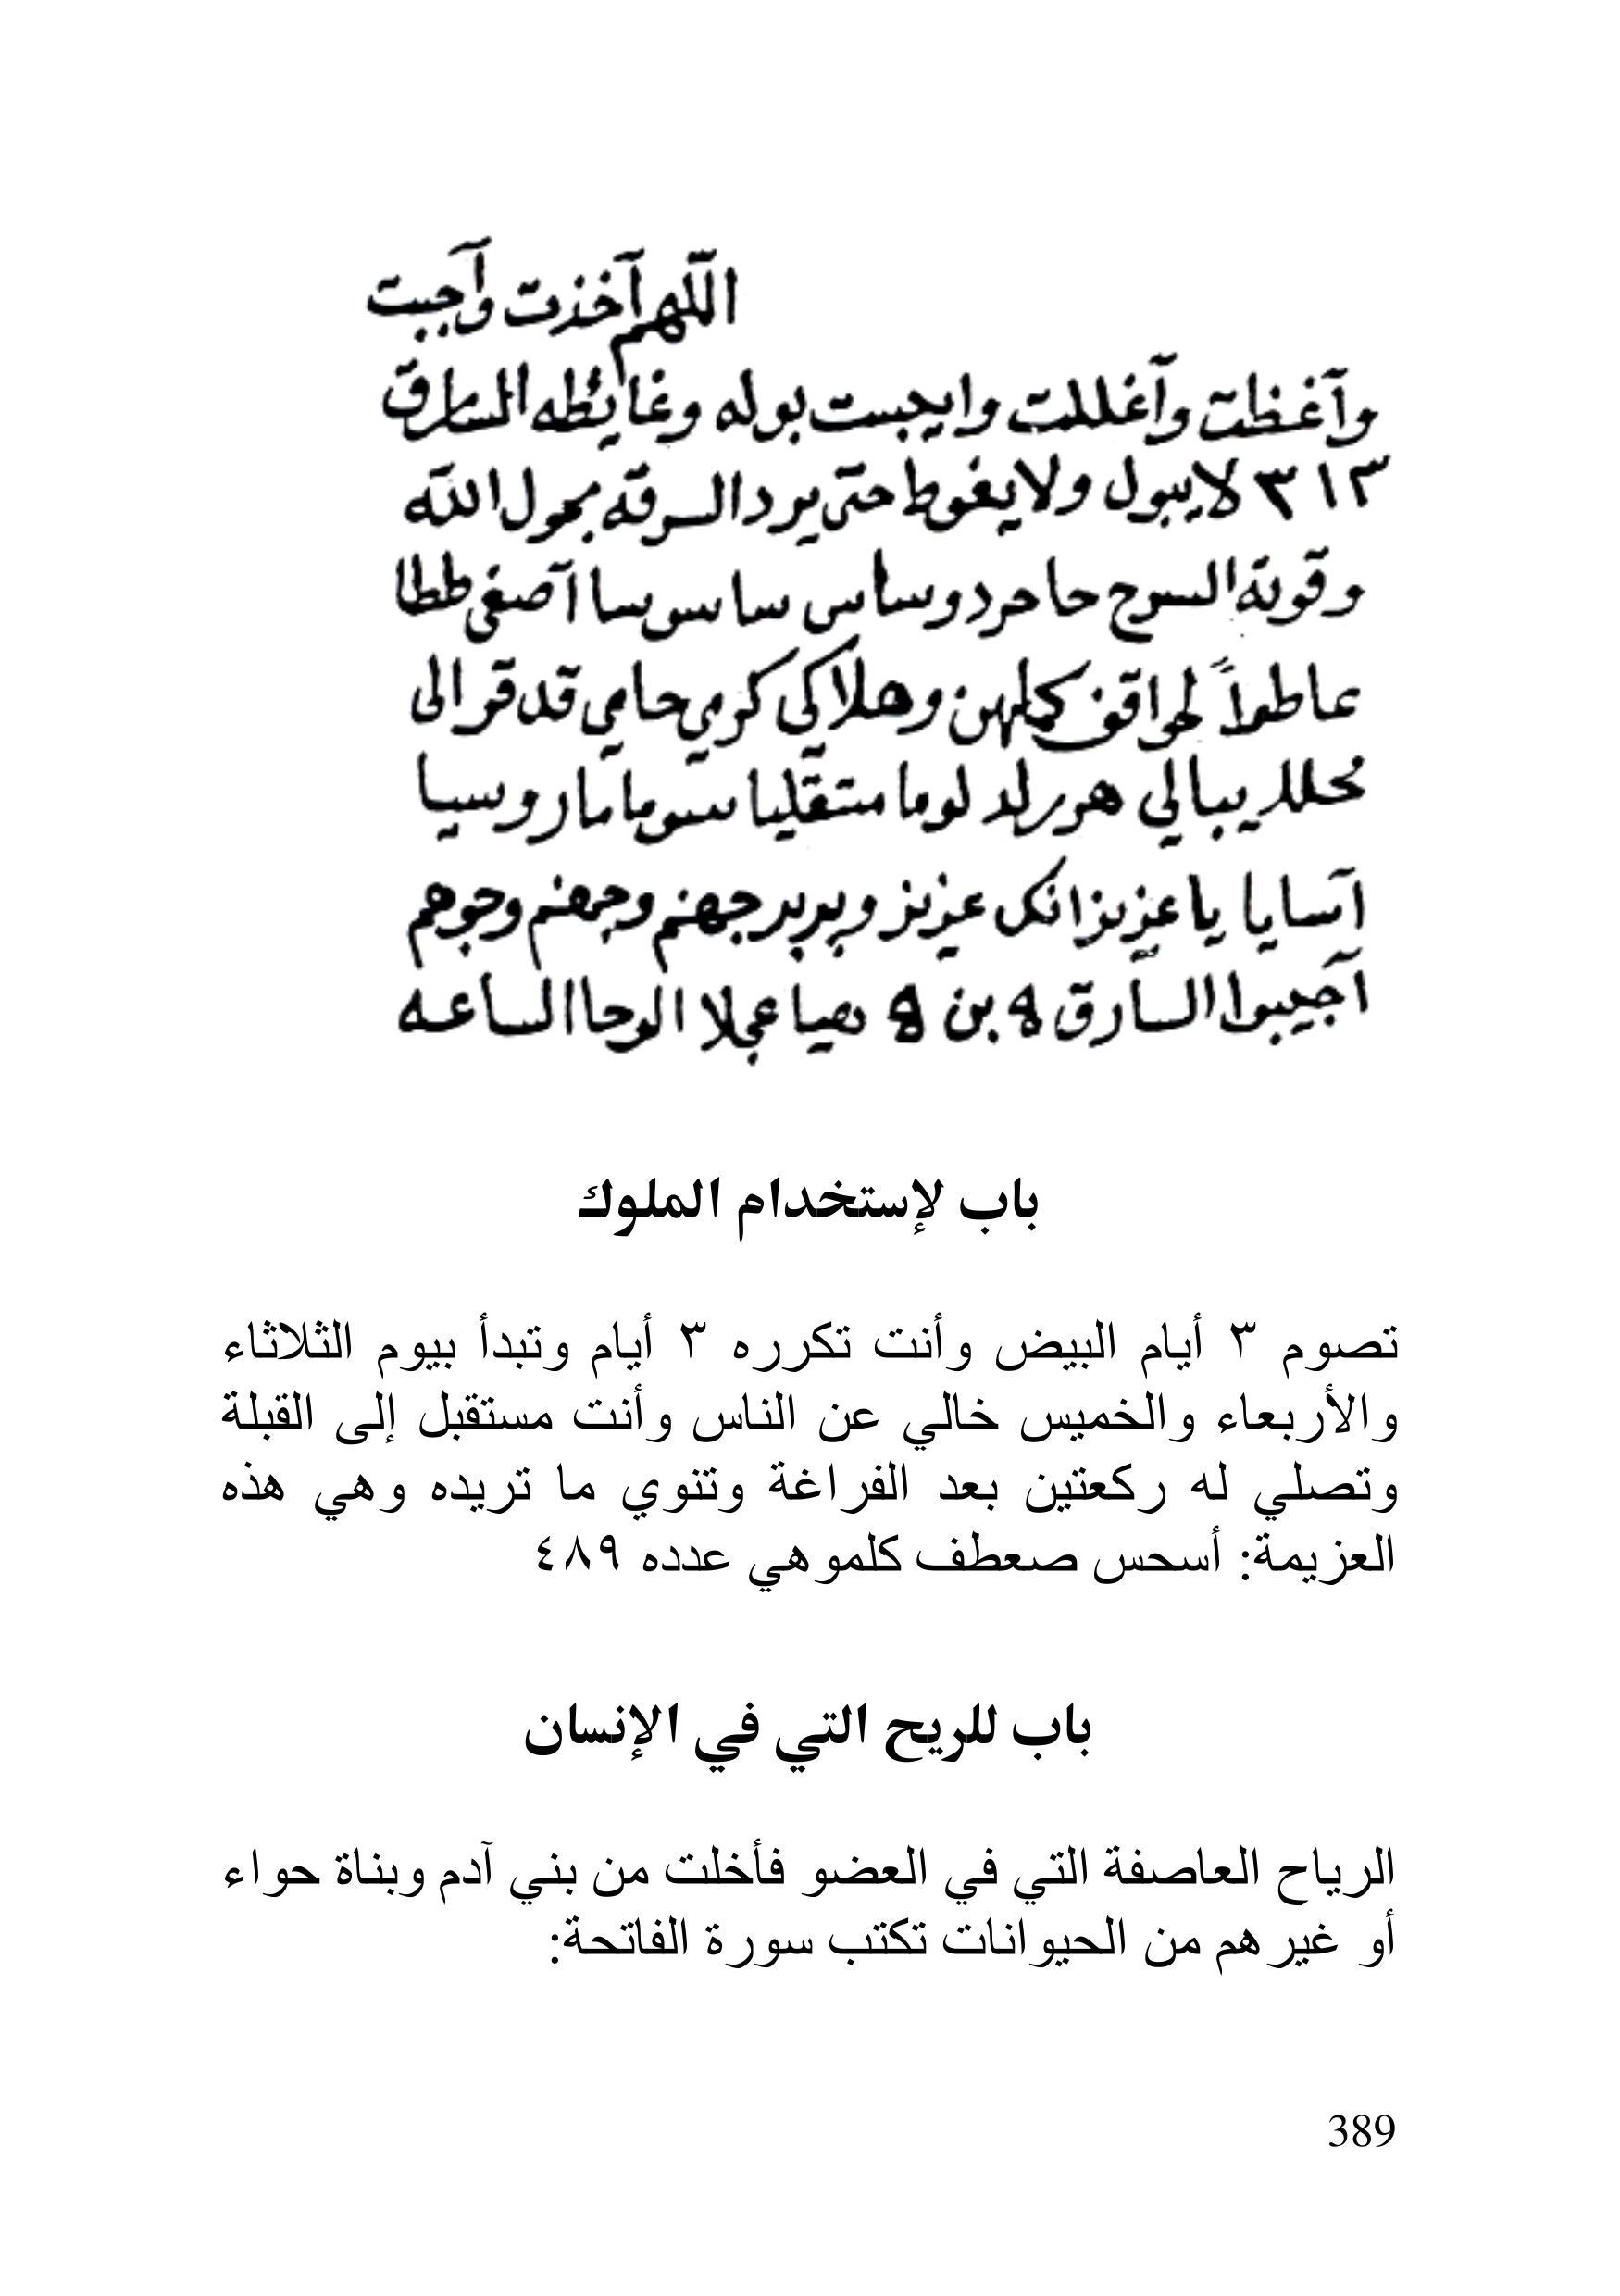 اللهم آخذت وآجبت
وآغظت وآغللت وايجبست بوله وغايطه السارق
٣١٣ لا يبول ولا يغوط حتى يرد السرقه بحول الله
وقوته السوح حا حرد وساس سا سوسا اآصغى ططا
عاطوا لهواقف كلهن وهلا كى كري حاي قد قرالى
يبالي لوما سوماما روسيا
آسايا يا عزيز انك عزيز وبربر جهنم وجهنم
آجيبوا السارق ۿ بن ۿ هيا عجلا الوحا الساعه
باب لإستخدام الملوك
تصوم ٣ أيام البيض وأنت تكرره ٣ أيام وتبدأ بيوم الثلاثاء
والأربعاء والخميس خالي عن الناس وأنت مستقبل إلى القبلة
وتصلي له ركعتين بعد الفراغة وتنوي ما تريده وهي هذه
العزيمة: أسحس صعطف كلموهي عدده ٤٨٩
باب للريح التي في الإنسان
الرياح العاصفة التي في العضو فأخلت من بني آدم وبناة حواء
أو غيرهم من الحيوانات تكتب سورة الفاتحة:
389